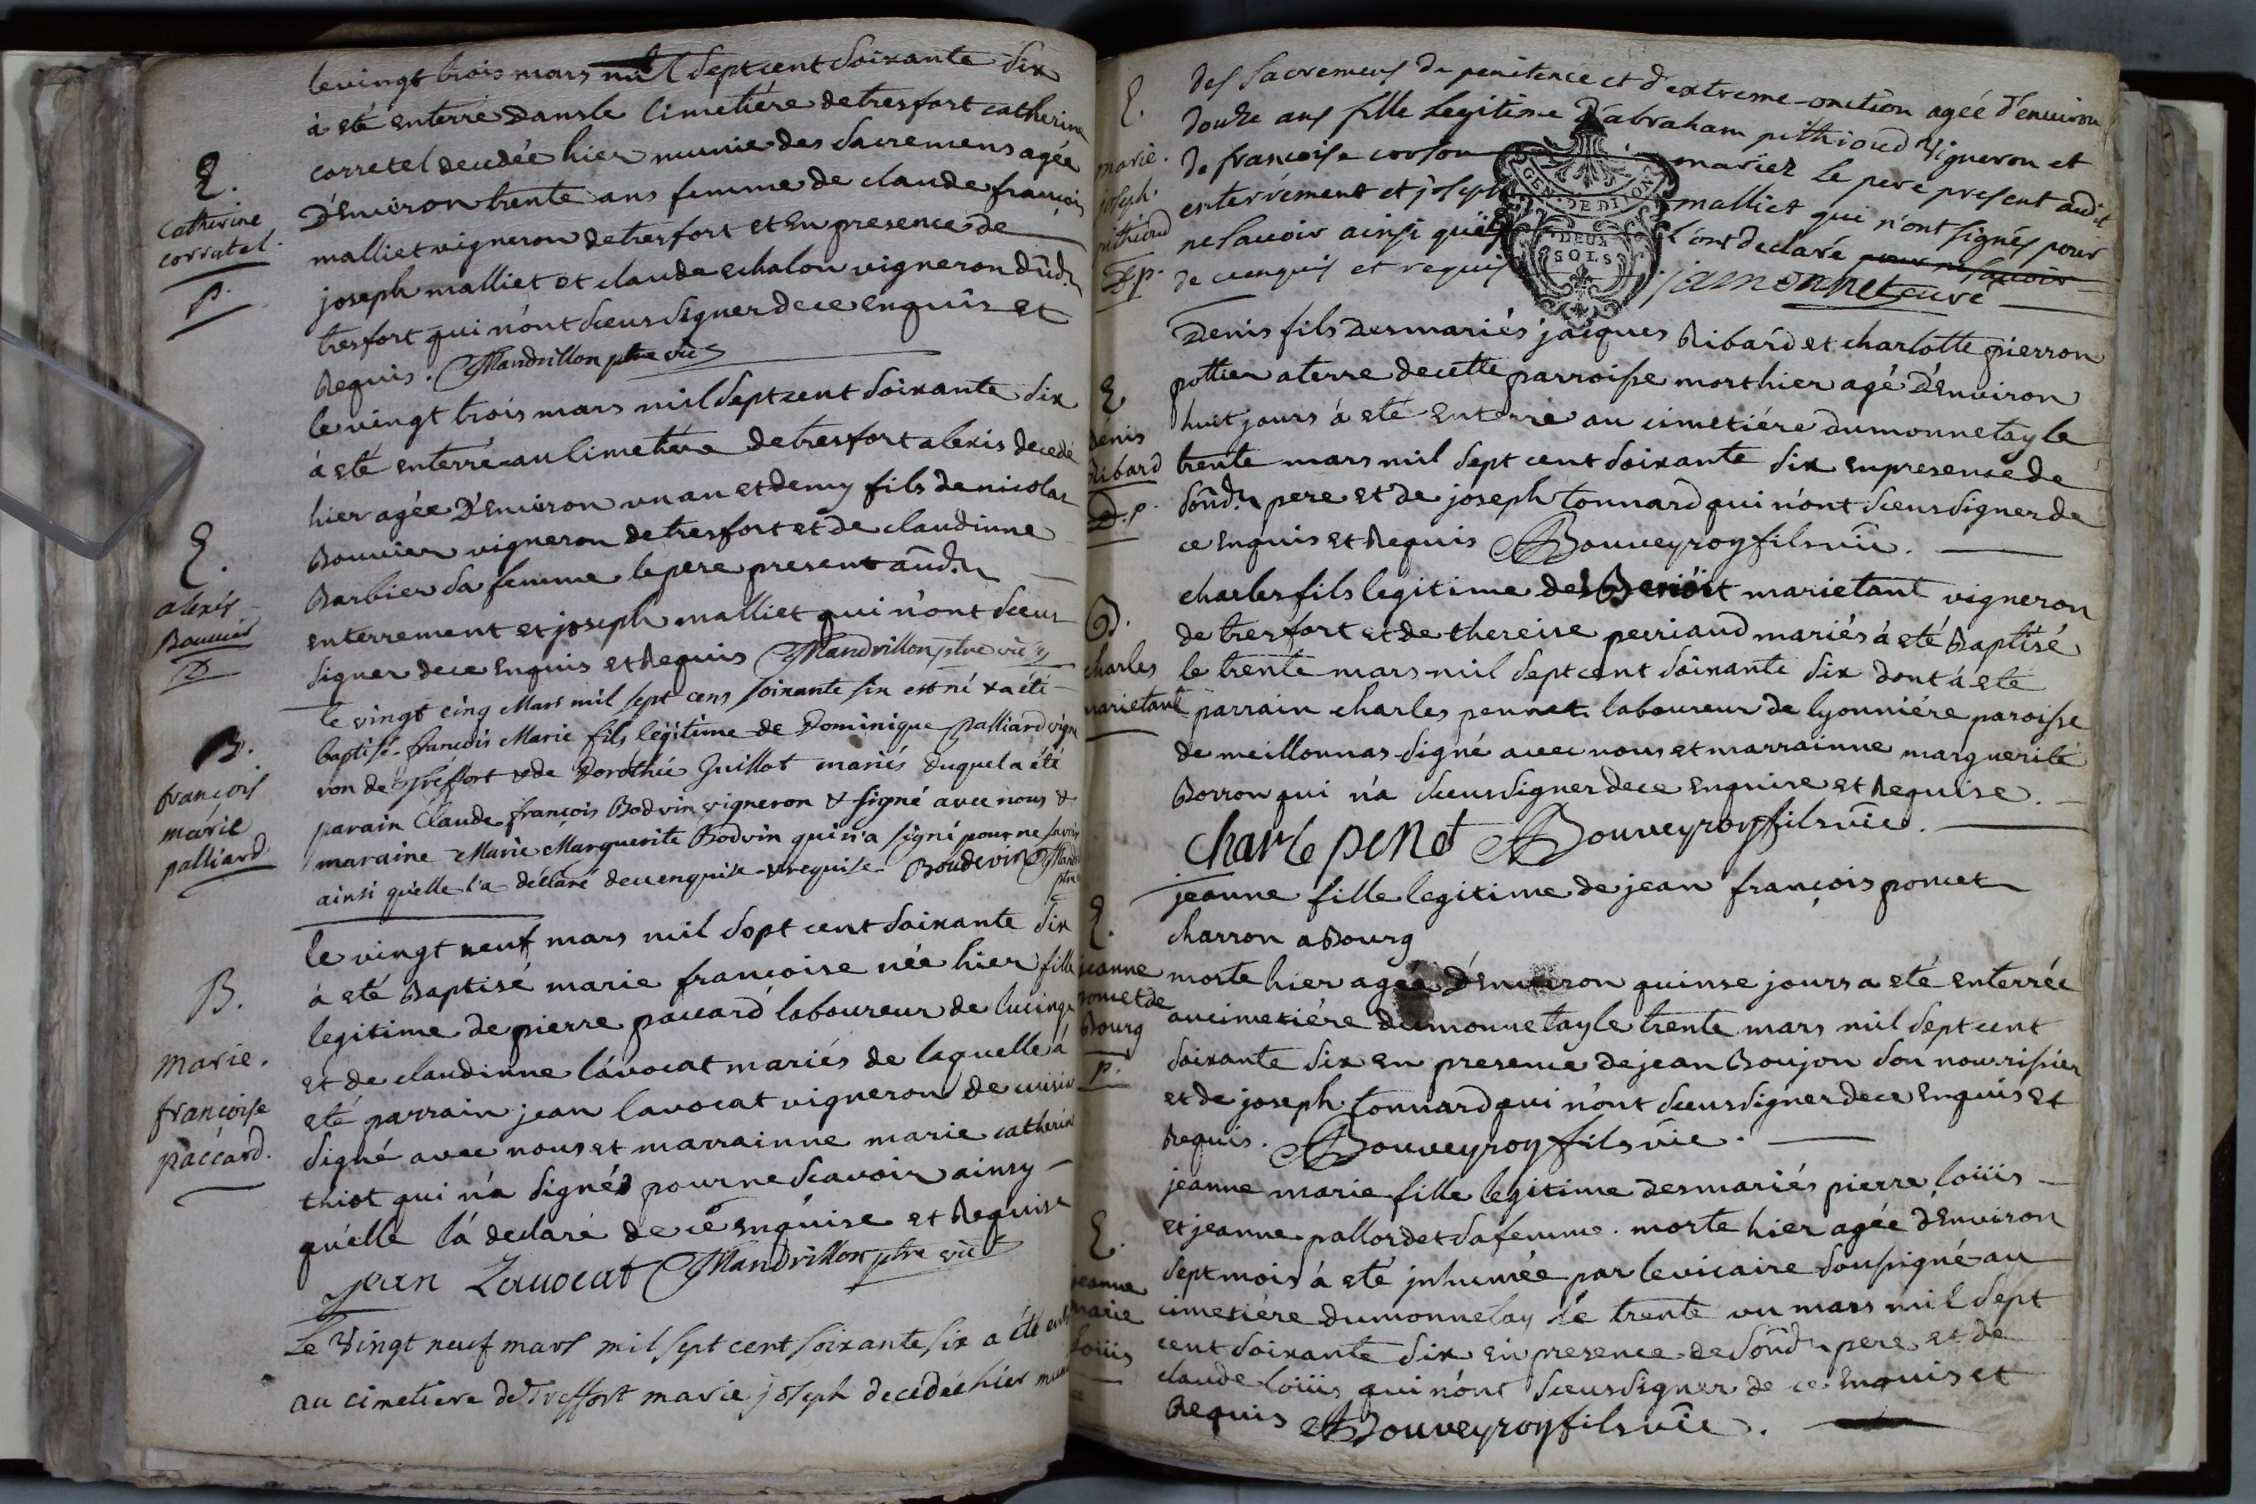 le vingt trois mars mil sept cent soixante six
à eté enterré dans le cimetière de tresfort catherine
corretel decedée hier munie des sacremens agée
D'Environ trente ans femme de claude françois
malliet vigneron de tresfort et en presence de
joseph malliet et claude echalon vigneron dud.
tresfort qui n'ont sceus signer de ce enquis et
Requis. Mandrillon ptre vic
E.
catherine
corratel.
P.
le vingt trois mars mil sept cent soixante six
à eté enterré au cimetière de tresfort alexis decedé
hier agée D'Environ un an et demy fils de nicolas
Bouvier vigneron de tresfort et de claudinne
Barbier sa femme le pere present aud.
enterrement et joseph malliet qui n'ont sceus
signer de ce enquis et Requis Mandrillon ptre vic
E.
alexis
Bouvier
D
le vingt cinq Mars mil sept cens soixante six est né & a été
baptisé françois Marie fils légitime de Dominique Palliard vigne
ron de Treffort & de Dorothée Guillot mariés duquel a été
parain Claude françois Bodvin vigneron & signé avec nous &
maraine Marie Marguerite Bodvin qui n'a signé pour ne savoir
ainsi qu'elle l'a déclaré de ce enquise & requise. Boudevin
B.
francois
marie
palliard
le vingt neuf mars mil sept cent soixante six
à eté Baptisé marie françoise née hier fille
legitime de pierre paccard laboureur de lucinge
et de claudinne lavocat mariés de laquelle à
eté parrain jean lavocat vigneron de cuisia
signé avec nous et marrainne marie catherine
thiot qui n'a signé pour ne scavoir ainsy
qu'elle l'à declaré de ce enquise et Requise
jean Lavocat Mandrillon ptre vic
B.
marie.
francoise
paccard.
Le vingt neuf mars mil sept cent soixante six a été
au cimetiere de Treffort marie joseph decedée hier
des sacremens de penitence et d'extreme-onction agée d'environ
douze ans fille legitime d'abraham pithioud vigneron et
de francoise corson mariez le pere present audit
enterrement et joseph malliet qui n'ont signés pour
ne savoir ainsi qu'ils l'ont declaré pour ne savoir
de ce enquis et requis jamonnet curé
GEN. DE DIJON
DEUX
SOLS
E.
marie.
joseph.
pithioud
P.
Denis fils Des mariés jacques Ribard et charlotte pierron
pottier a terre de cette parroisse mort hier agé D'Environ
huit jours à eté enterré au cimetiére du monnetay le
trente mars mil sept cent soixante six en presence de
sond. pere et de joseph tonnard qui n'ont sceus signer de
ce enquis et Requis Bouveyroy fils vic.
E
denis
Ribard
D.P.
charles fils legitime de Benoit marietant vigneron
de tresfort et de thereise perriaud mariés à eté Baptisé
le trente mars mil sept cent soixante six dont à eté
parrain charles pennet laboureur de lyonniére paroisse
de meillonnas signé avec nous et marrainne marguerite
Borron qui n'à sceus signer de ce enquise et Requise.
charle penet Bouveyroy fils vic.
B.
charles
marietant
jeanne fille legitime de jean françois poncet
charron a Bourg
morte hier agée D'Environ quinse jours a eté enterrée
au cimetiére du monnetay le trente mars mil sept cent
soixante six en presence de jean Boujon son nourrisier
et de joseph tonnard qui n'ont sceus signer de ce enquis et
Requis. Bouveyroy fils vic.
E.
jeanne
poncet de
Bourg
P.
jeanne marie fille legitime des mariés pierre loüis
et jeanne pallordet sa femme. morte hier agée D'Environ
sept mois à eté inhumée par le vicaire sousigné au
cimetiére du monnetay le trente un mars mil sept
cent soixante six en presence de sond. pere et de
claude loüis qui n'ont sceus signer de ce enquis et
Requis Bouveyroy fils vic.
E.
jeanne
marie
loüis